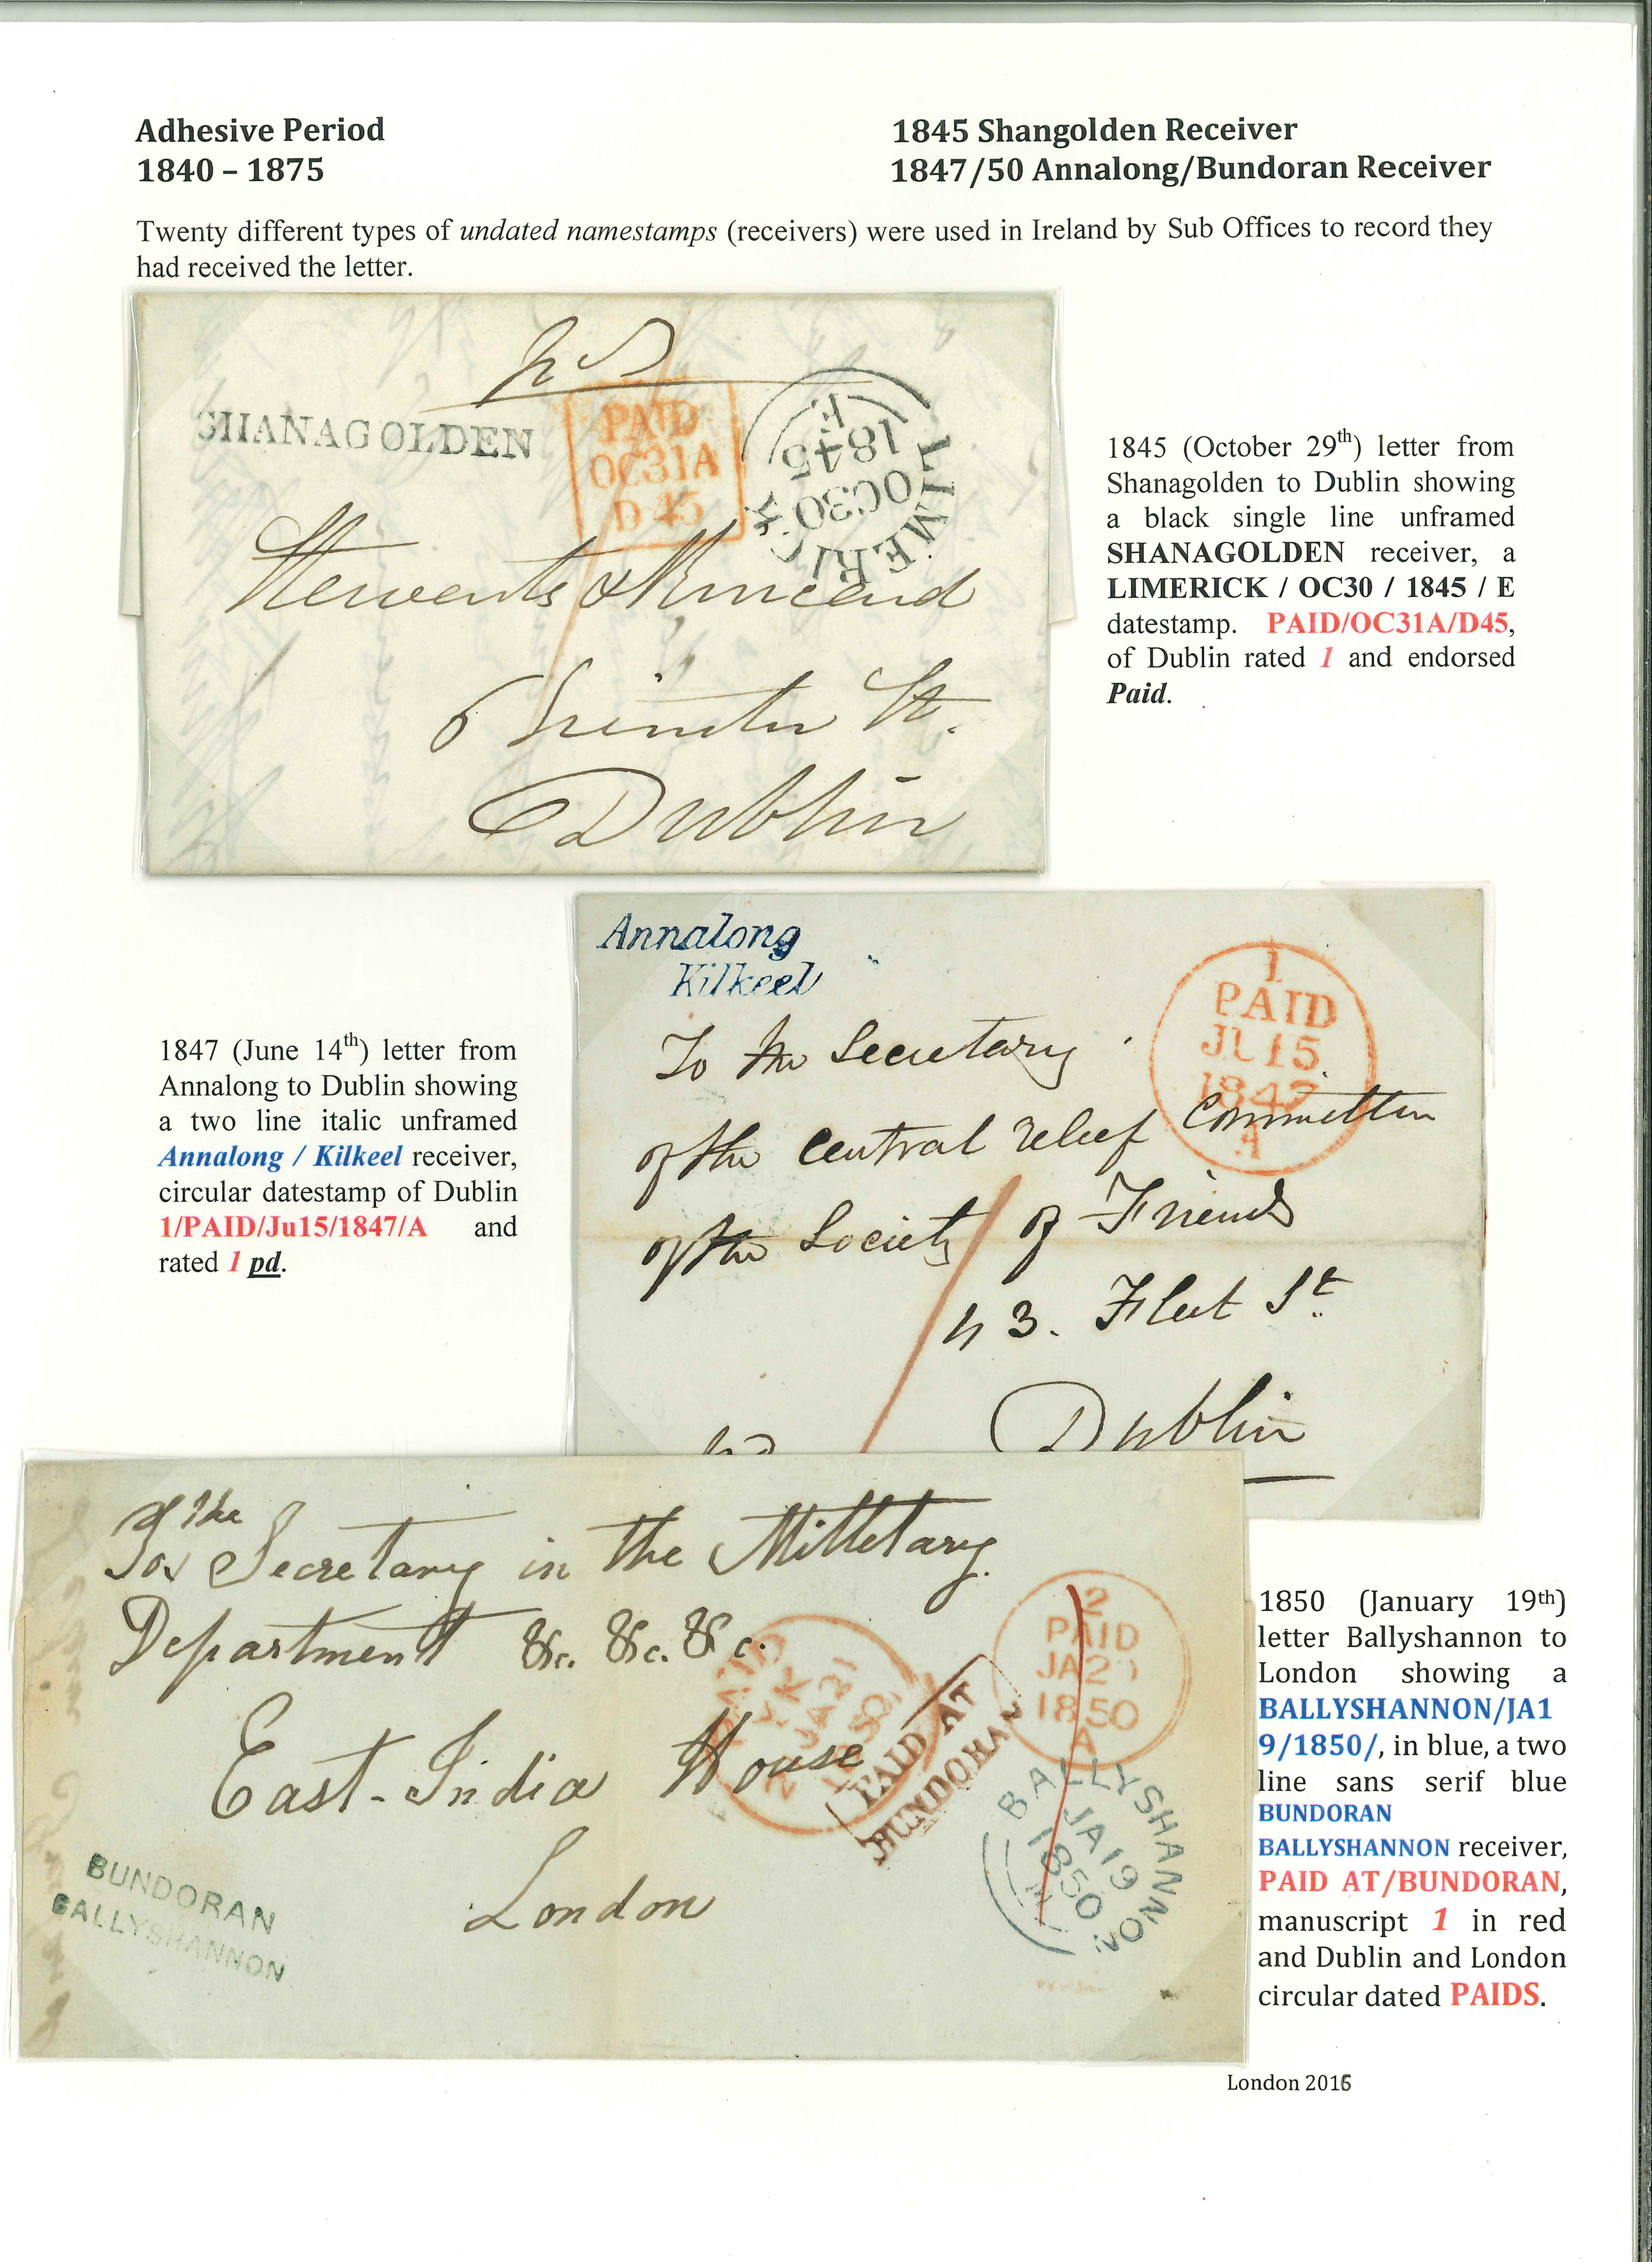 Adhesive Period
1840 – 1875
1845 Shangolden Receiver
1847/50 Annalong/Bundoran Receiver
Twenty different types of undated namestamps (receivers) were used in Ireland by Sub Offices to record they
had received the letter.
SHANAGOLDEN
PAID
OC31A
D 45
LIMERICK
OC30
1845
6
St.
Dublin
1845 (October 29th) letter from
Shanagolden to Dublin showing
a black single line unframed
SHANAGOLDEN receiver, a
LIMERICK / OC30 / 1845 / E
datestamp. PAID/OC31A/D45,
of Dublin rated 1 and endorsed
Paid.
Annalong
Kilkeel
1
PAID
JU 15
1847
A
To the Secretary
of the Central relief Committee
of the Society of Friends
43. Fleet St
Dublin
1847 (June 14th) letter from
Annalong to Dublin showing
a two line italic unframed
Annalong / Kilkeel receiver,
circular datestamp of Dublin
1/PAID/Ju15/1847/A and
rated 1 pd.
To the Secretary in the Milletary
Department &c. &c. &c.
East-India House
London
PAID
JA21
1850
PAID AT
BUNDORAN
2
PAID
JA2
1850
A
BALLYSHANNON
JA19
1850
BUNDORAN
BALLYSHANNON
1850 (January 19th)
letter Ballyshannon to
London showing a
BALLYSHANNON/JA1
9/1850/, in blue, a two
line sans serif blue
BUNDORAN
BALLYSHANNON receiver,
PAID AT/BUNDORAN,
manuscript 1 in red
and Dublin and London
circular dated PAIDS.
London 2015